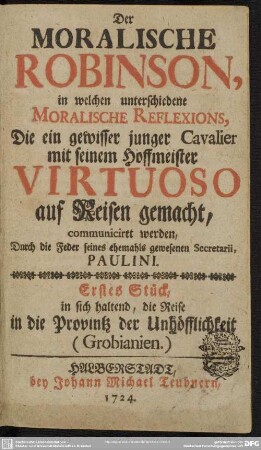 Der
MORALISCHE
ROBINSON,
in welchen unterschiedene
MORALISCHE REFLEXIONS,
Die ein gewisser junger Cavalier
mit seinem Hoffmeister
VIRTUOSO
auf Reisen gemacht,
communiciret werden,
Durch die Feder seines ehemahls gewesenen Secretarii,
PAULINI.
Erstes Stück,
in sich haltend, die Reise
in die Provintz der Unhöfflichkeit
(Grobianien.)
HALBERSTADT,
bey Johann Michael Teubnern,
1724.
DFG